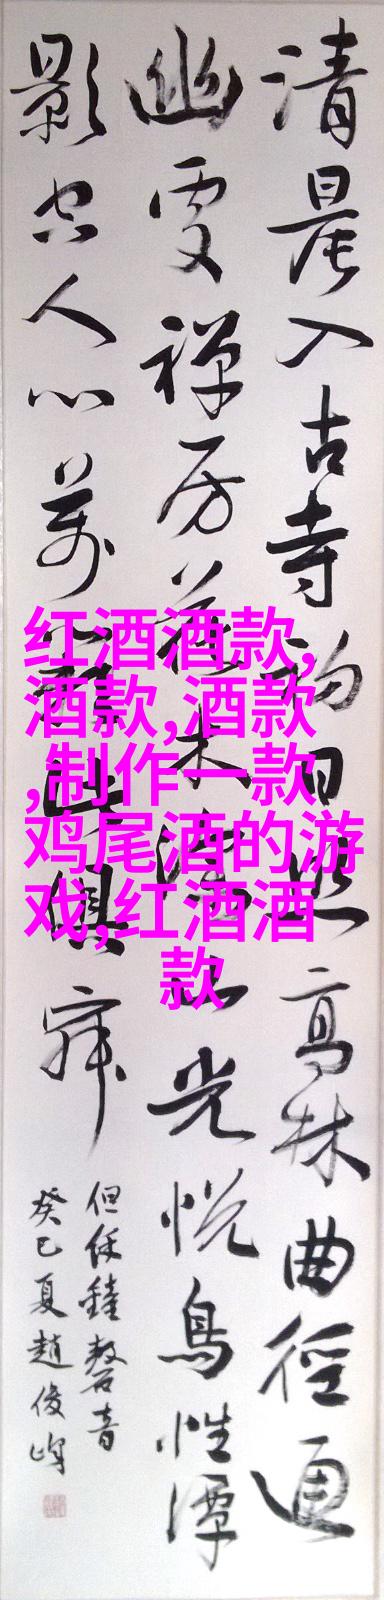 清晨入古寺初日照高林曲徑通
幽處禅房花木深山光悦鳥性潭
影空人心萬籟此俱寂
但余鐘磬音
癸巳夏趙俊峰
红酒酒款,
酒款,酒款
,制作一款
鸡尾酒的游
戏,红酒酒
款